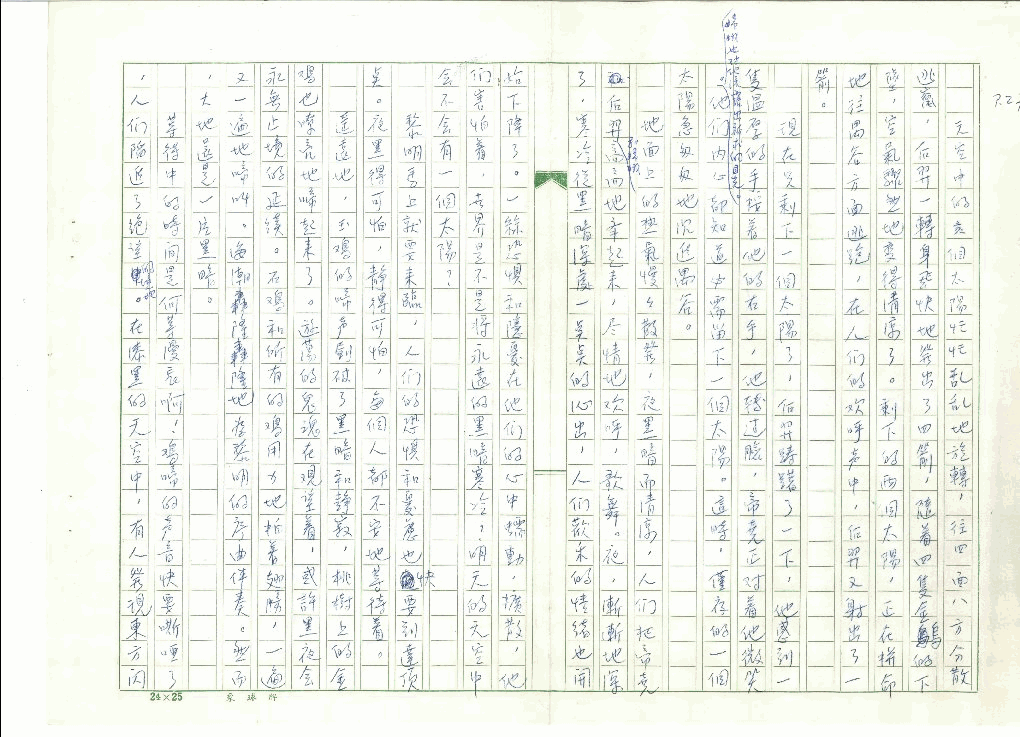 天空中的六個太陽忙忙亂亂地旋轉,往四面八方分散
逃竄,后羿一轉身飛快地發出了四箭,隨着四隻金鷄的下
墜,空氣驟然地变得清涼了。剩下的兩個太陽,正在拼命
地往禺谷方面逃跑,在人們的欢呼声中,后羿又射出了一
箭。
現在只剩下一個太陽了,后羿躊躇了一下,他感到一
隻溫厚的手按着他的右手,他轉过臉,帝堯正对着他微笑
,他們內心都知道必需留下一個太陽。這時,僅存的一個
太陽急匆匆地沉進禺谷。
地面上的热氣慢々散發,夜黑暗而清涼,人們把帝堯
后羿高高地举起来,尽情地欢呼,歌舞。夜,漸漸地深
了,寒冷從黑暗深處一吴吴的沁出,人們歡乐的情緒也開
始下降了。一絲恐惧和隱憂在他們的心中蠕動,擴散,他
們害怕着,世界是不是將永遠的黑暗寒冷?明天的天空中
会不会有一個太陽?
黎明馬上就要来臨,人們的恐惧和憂慮也快要到達頂
吴。夜黑得可怕,靜得可怕,每個人都不安地等待着。
遥遠地,玉鷄的啼声劃破了黑暗和靜寂,桃樹上的金
鷄也嘹亮地啼起来了。遊蕩的鬼魂在观望着,或許黑夜会
永無止境的延续。石鷄和所有的鷄用力地拍着翅膀,一遍
又一遍地啼叫。海潮轟隆轟隆地為黎明的序曲伴奏。然而
,大地還是一片黑暗。
等待中的時間是何等漫長啊!鷄啼的声音快要嘶啞了
,人們陷進了絕望。在漆黑的天空中,有人發現東方閃
24×25